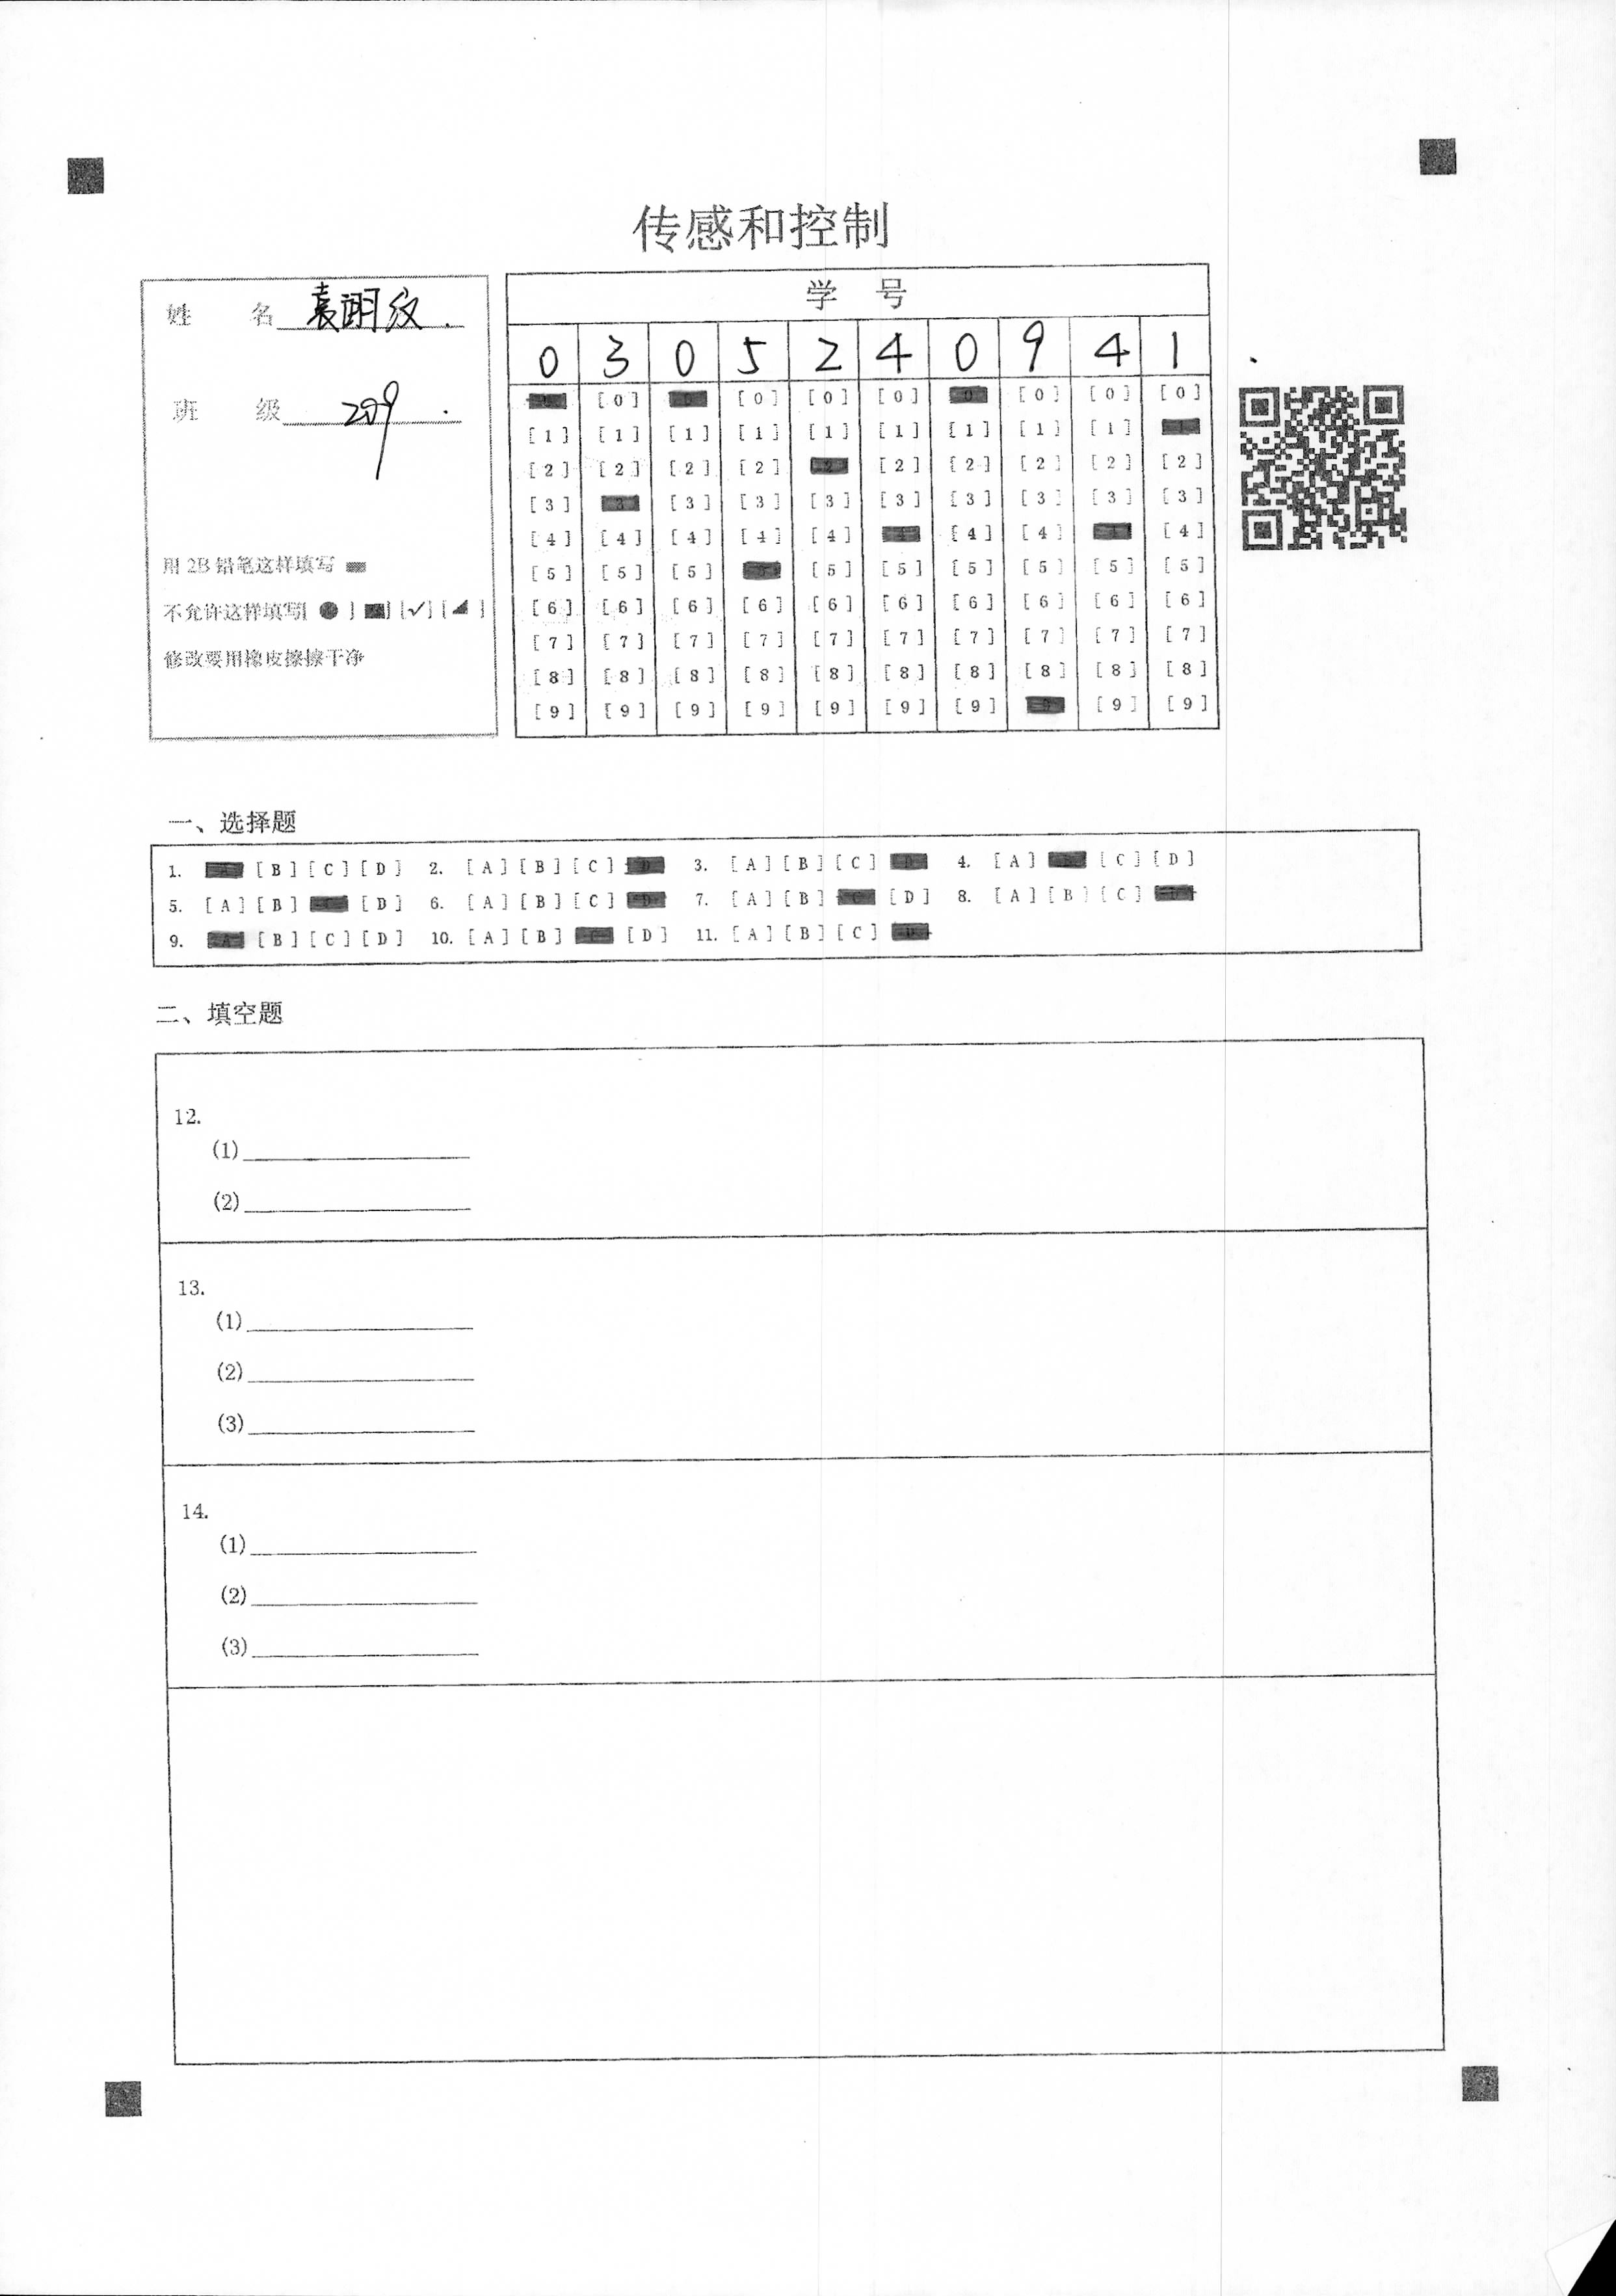 传感和控制
姓 名 袁翊纹.
班 级 209.
用 2B 铅笔这样填写
不允许这样填写[ ● ] [■] [✓] [◢ ]
修改要用橡皮擦擦干净
学 号
0 3 0 5 2 4 0 9 4 1
[0] [0] [0] [0] [0] [0] [0] [0] [0] [0]
[1] [1] [1] [1] [1] [1] [1] [1] [1] [1]
[2] [2] [2] [2] [2] [2] [2] [2] [2] [2]
[3] [3] [3] [3] [3] [3] [3] [3] [3] [3]
[4] [4] [4] [4] [4] [4] [4] [4] [4] [4]
[5] [5] [5] [5] [5] [5] [5] [5] [5] [5]
[6] [6] [6] [6] [6] [6] [6] [6] [6] [6]
[7] [7] [7] [7] [7] [7] [7] [7] [7] [7]
[8] [8] [8] [8] [8] [8] [8] [8] [8] [8]
[9] [9] [9] [9] [9] [9] [9] [9] [9] [9]
一、选择题
1. [A] [B] [C] [D] 2. [A] [B] [C] [D] 3. [A] [B] [C] [D] 4. [A] [B] [C] [D]
5. [A] [B] [C] [D] 6. [A] [B] [C] [D] 7. [A] [B] [C] [D] 8. [A] [B] [C] [D]
9. [A] [B] [C] [D] 10. [A] [B] [C] [D] 11. [A] [B] [C] [D]
二、填空题
12.
(1)
(2)
13.
(1)
(2)
(3)
14.
(1)
(2)
(3)